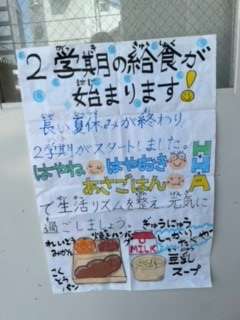 2学期の給食が
始まります!
長い夏休みが終わり
2学期がスタートしました。
はやね はやおき
あさごはん
HHA
で生活リズムを整え 元気に
過ごしましょう。
ぎゅうにゅう
れいとう
みかん
MILK
こくとう
パン
豆乳
スープ